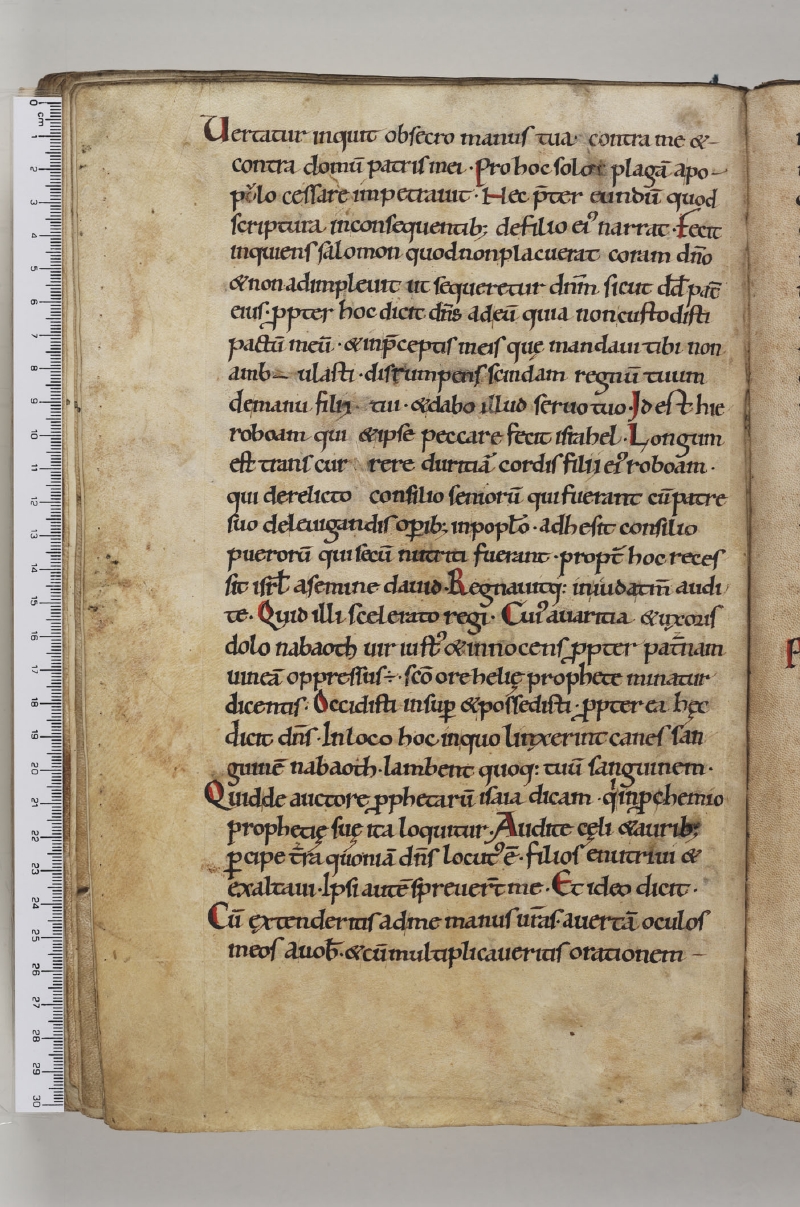 Uertatur inquit obsecro manus tua contra me &
contra domū patris mei · Pro hoc solo plagā a po-
pŏlo cessare impetrauit · Hec p̄ter eundū quod
scriptura inconsequentib; de filio ei᾽ narrat · Fecit
inquiens salomon quod non placuerat coram dn̄o
& non adimpleuit ut sequeretur dnm̄ sicut dd̄ pat̄
eius · ꝓpter hoc dicit dn̄s ad eū quia non custodisti
pactū meū · & in p̄ceptis meis quę mandaui tibi non
amb- ulasti · disrumpens scindam regnū tuum
de manu filii tui · & dabo illud seruo tuo · Id est hie
roboam qui & ipse peccare fecit israhel · Longum
est transcur rere duritiā cordis filii ei᾽ roboam ·
qui derelicto consilio seniorū qui fuerant cū patre
suo de leuigandis oꝑib; in pop̄lo · adhesit consilio
puerorū qui secū nutriti fuerant · propt̄ hoc reces
sit isrł a semine dauid · Regnauitq: in iudam̄ audi
te · Quid illi scelerato regi · Cui᾽ auaritia & uxoris
dolo nabaoth uir iust᾽ & innocens ꝓpter pat̄nam
uineā oppressus ÷ · sc̄o ore helię prophete minatur
dicentis · Occidisti insuꝑ & possedisti · ꝓpter ea hęc
dicit dn̄s · In loco hoc in quo linxerint canes san
guinē nabaoth · lambent quoq: tuū sanguinem ·
Quid de auctore ꝓphetarū isaia dicam · q̇ in ꝓhemio
prophetię suę ita loquitur · Audite cęli & aurib;
ꝑcipe t̄ra quoniā dn̄s locut᾽ ē · filios enutriui &
exaltaui · Ipsi autē spreuer̄t me · Et ideo dicit ·
Cū extenderitis ad me manus ur̄as · auertā oculos
meos a uob̄ · & cū multiplicaueritis orationem -